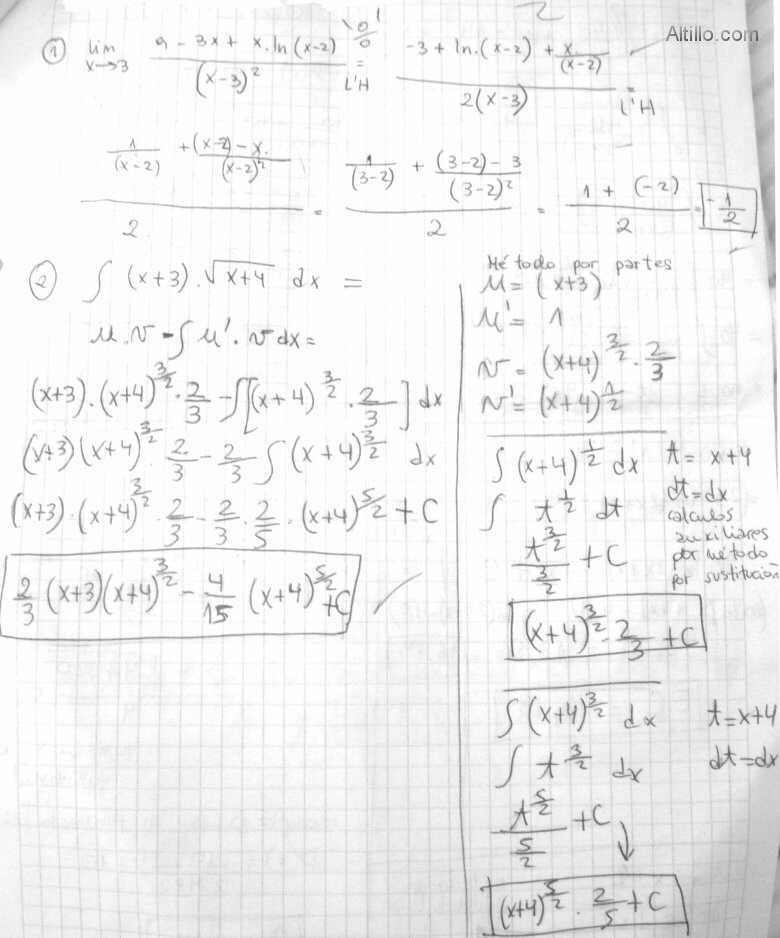 Altillo.com
① lim x→3 (9 - 3x + x.ln(x-2)) / (x-3)² = "0/0" L'H (-3 + ln.(x-2) + x/(x-2)) / 2(x-3) = L'H
(1/(x-2) + ((x-2) - x.)/(x-2)²) / 2 = (1/(3-2) + ((3-2) - 3)/(3-2)²) / 2 = (1 + (-2)) / 2 = -1/2
② ∫ (x+3).√(x+4) dx =
u.v - ∫ u'.v dx =
(x+3).(x+4)^(3/2) . 2/3 - ∫[(x+4)^(3/2) . 2/3] dx
(x+3)(x+4)^(3/2) . 2/3 - 2/3 ∫ (x+4)^(3/2) dx
(x+3).(x+4)^(3/2) . 2/3 - 2/3 . 2/5 . (x+4)^(5/2) + C
2/3 (x+3)(x+4)^(3/2) - 4/15 (x+4)^(5/2) + C
Método por partes
u = (x+3)
u' = 1
v = (x+4)^(3/2) . 2/3
v' = (x+4)^(1/2)
∫ (x+4)^(1/2) dx t = x+4
∫ t^(1/2) dt dt = dx
calculos
auxiliares
por método
por sustitución
t^(3/2) / (3/2) + C
(x+4)^(3/2) . 2/3 + C
∫ (x+4)^(3/2) dx t = x+4
∫ t^(3/2) dx dt = dx
t^(5/2) / (5/2) + C
(x+4)^(5/2) . 2/5 + C